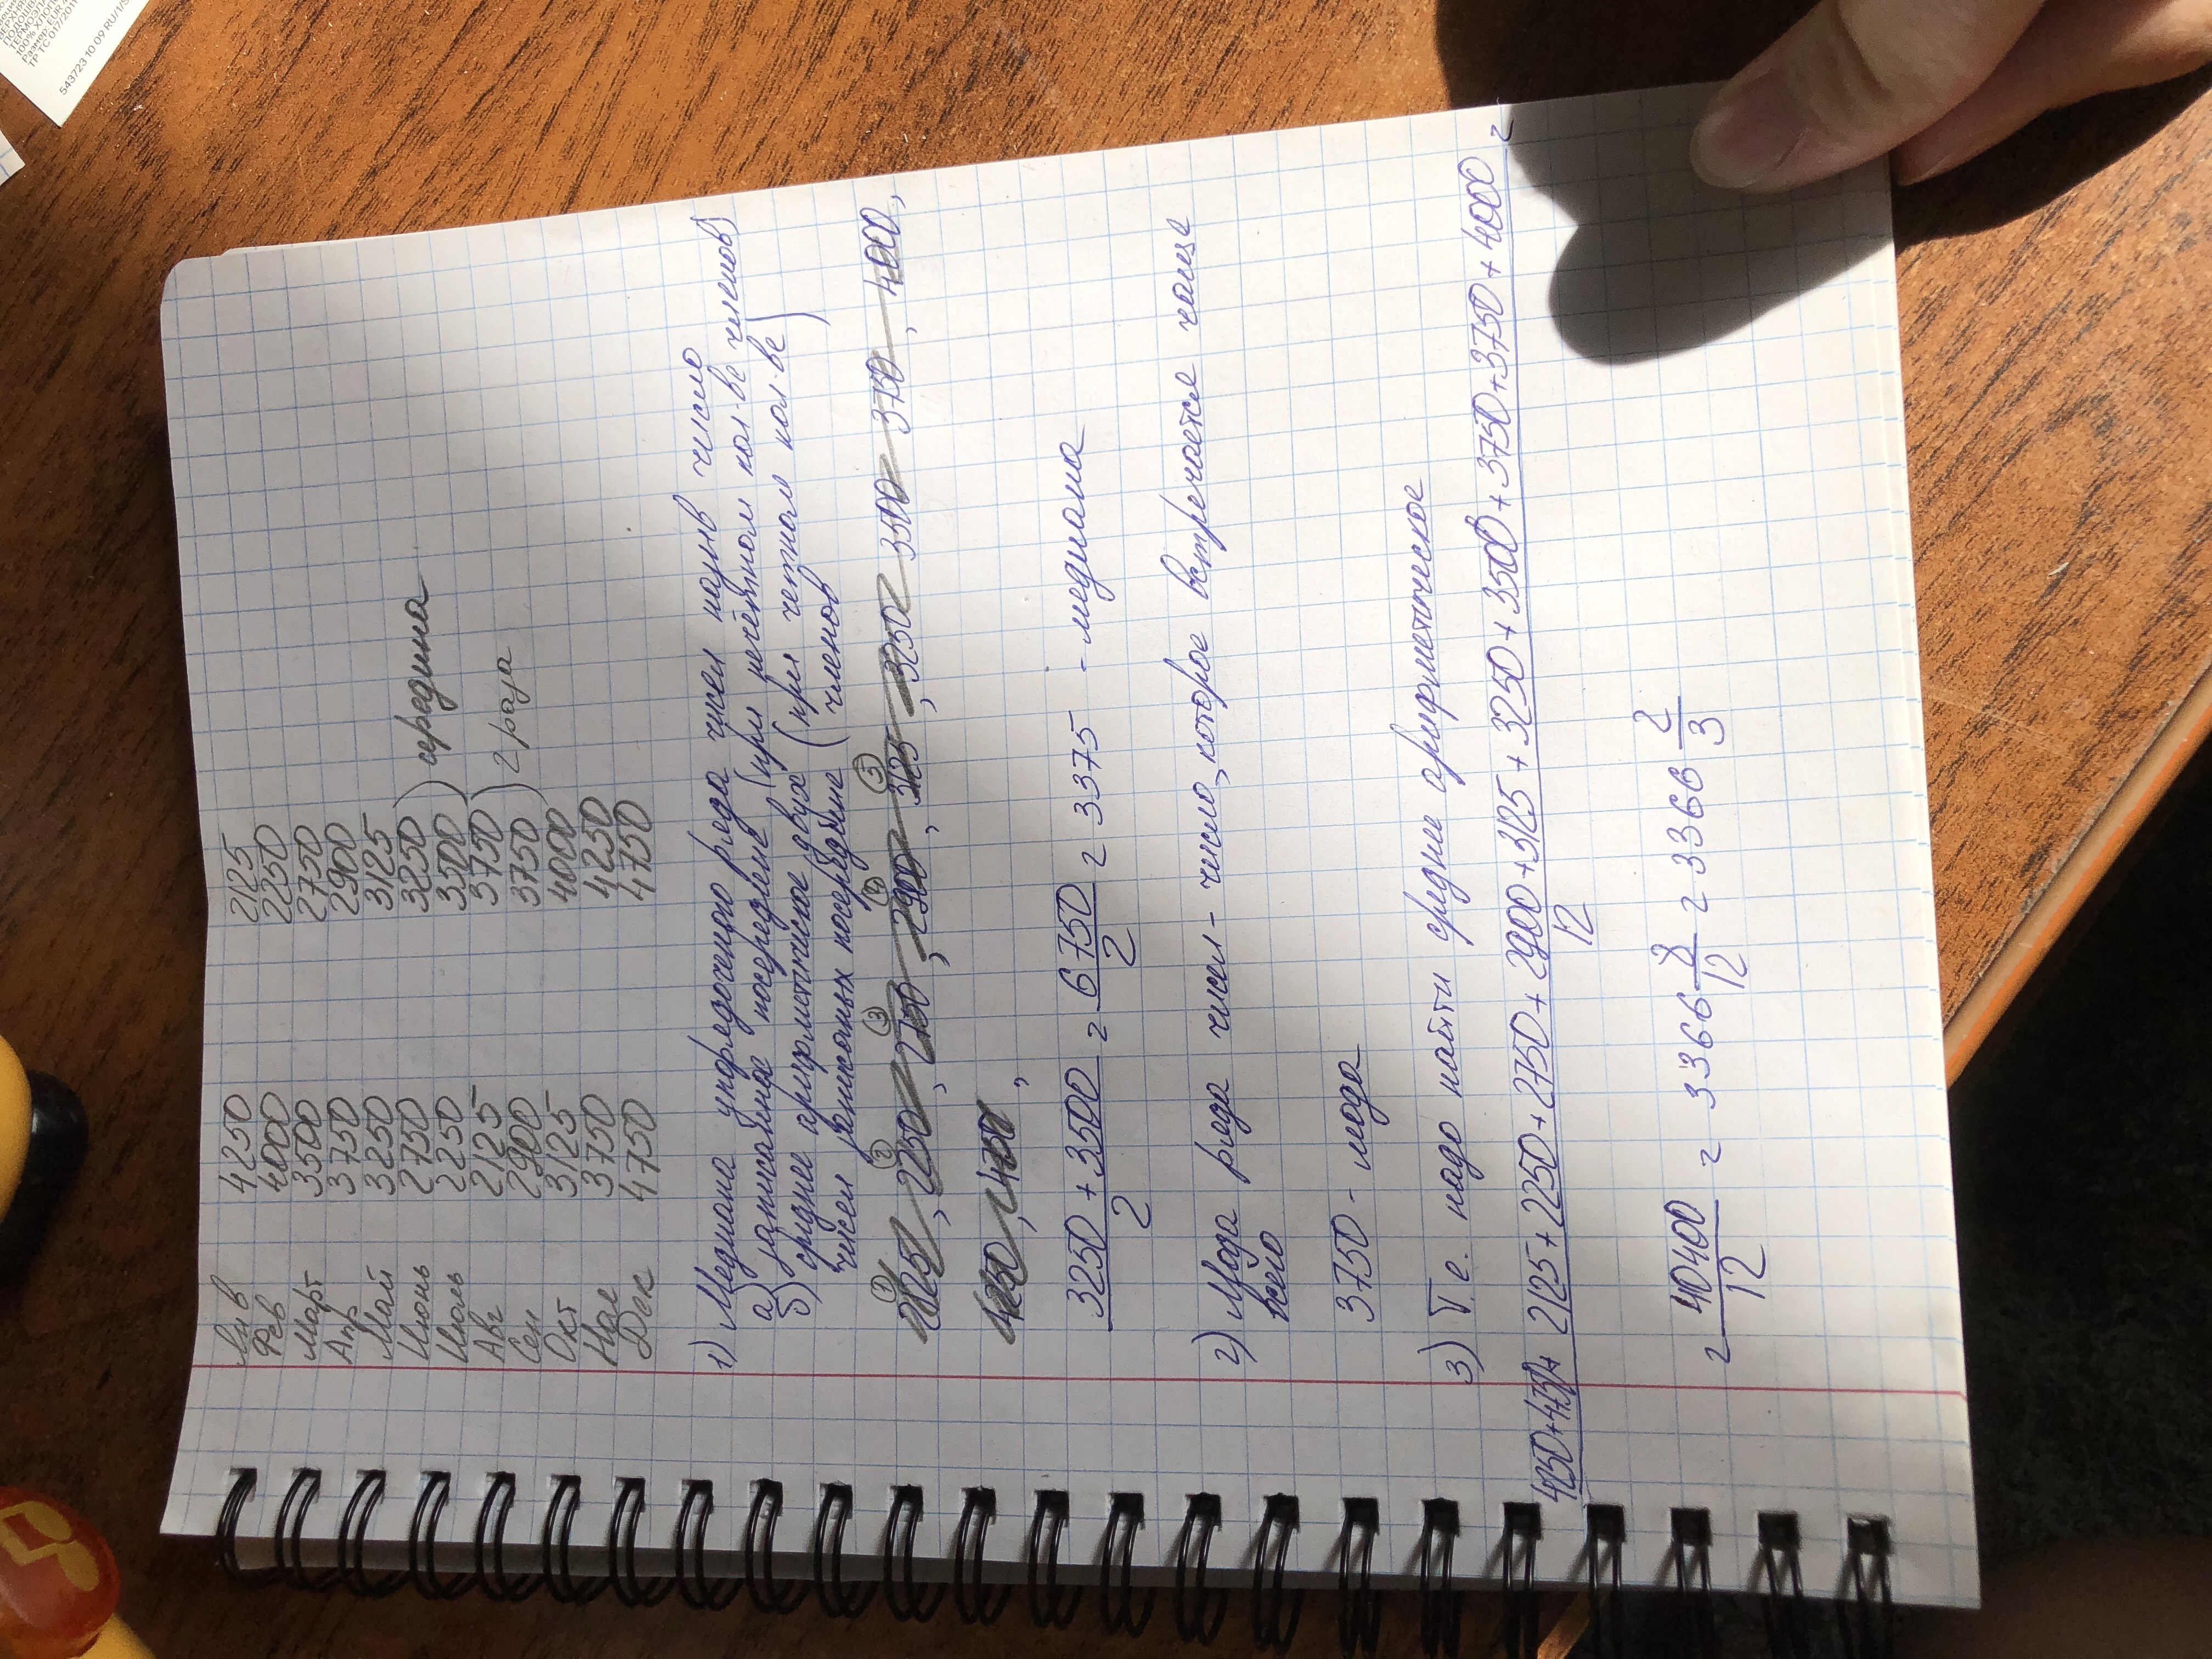 Янв 4250 2125
Фев 4000 2250
Март 3500 2750
Апр 3750 2900
Май 3250 3125
Июнь 2750 3250
Июль 2250 3500 ) середина
Авг 2125 3750
Сен 2900 3750 ) 2 раза
Окт 3125 4000
Ноя 3750 4250
Дек 4750 4750
1) Медиана упорядоченного ряда чисел назыв число
а) записанное посередине (при нечётном кол-ве членов)
б) среднее арифметическое двух (при четном кол-ве
чисел записанных посередине членов)
2125, 2250, 2750, 2900, 3125, 3250, 3500 3750, 4000,
4250, 4750,
3250 + 3500 / 2 = 6750 / 2 = 3375 - медиана
2) Мода ряда чисел - число, которое встречается чаще
всего
3750 - мода
3) Т.е. надо найти среднее арифметическое
4250+4750+ 2125 + 2250 + 2750 + 2900 + 3125 + 3250 + 3500 + 3750 + 3750 + 4000 / 12 =
= 40400 / 12 = 3366 8/12 = 3366 2/3
543723 10 09 RU/1/S
ТР ТС 017/2011